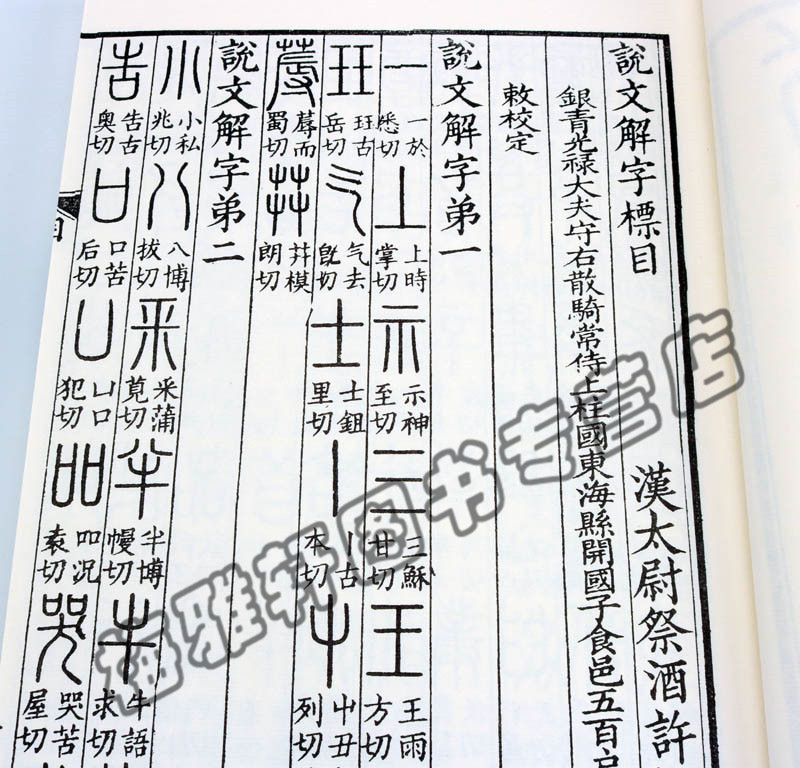 說文解字標目 漢太尉祭酒許
銀青光禄大夫守右散騎常侍上柱國東海縣開國子食邑五百戶
敕校定
說文解字弟一
一 一於悉切 丄 上時掌切 示 示神至切 三 三穌甘切 王 王雨方切
玨 玨古岳切 气 气去旣切 士 士鉏里切 丨 丨古本切 屮 屮丑列切
蓐 蓐而蜀切 茻 茻模朗切
說文解字弟二
小 小私兆切 八 八博拔切 釆 釆蒲莧切 半 半博幔切 牛 牛語求切
告 告古奧切 口 口苦后切 凵 凵口犯切 吅 吅况袁切 哭 哭苦屋切
梅雅轩图书专营店